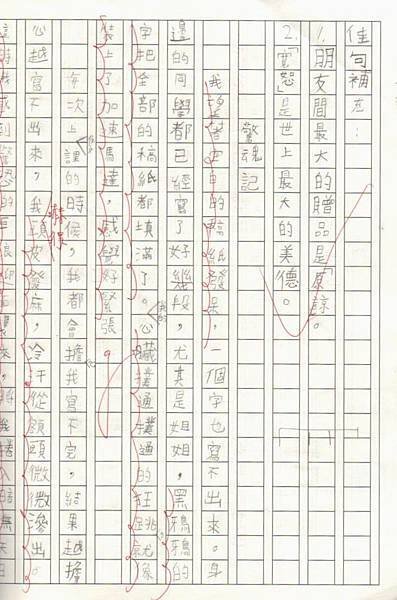 佳句補充：
1.朋友間最大的贈品是「原諒」。
2.寬「恕」是世上最大的美德。
驚魂記
我望著空白的稿紙發呆，一個字也寫不出來。身
邊的同學都已經寫了好幾段，尤其是姐姐，黑鴉鴉的
字把全部的稿紙都填滿了。我的心臟撲通撲通的狂跳就像
裝上了加速馬達，感覺好緊張。
每次上課的時候，我都會擔心我寫不完，結果越擔
心越寫不出來，我頭皮發麻，冷汗從額頭微微滲出。